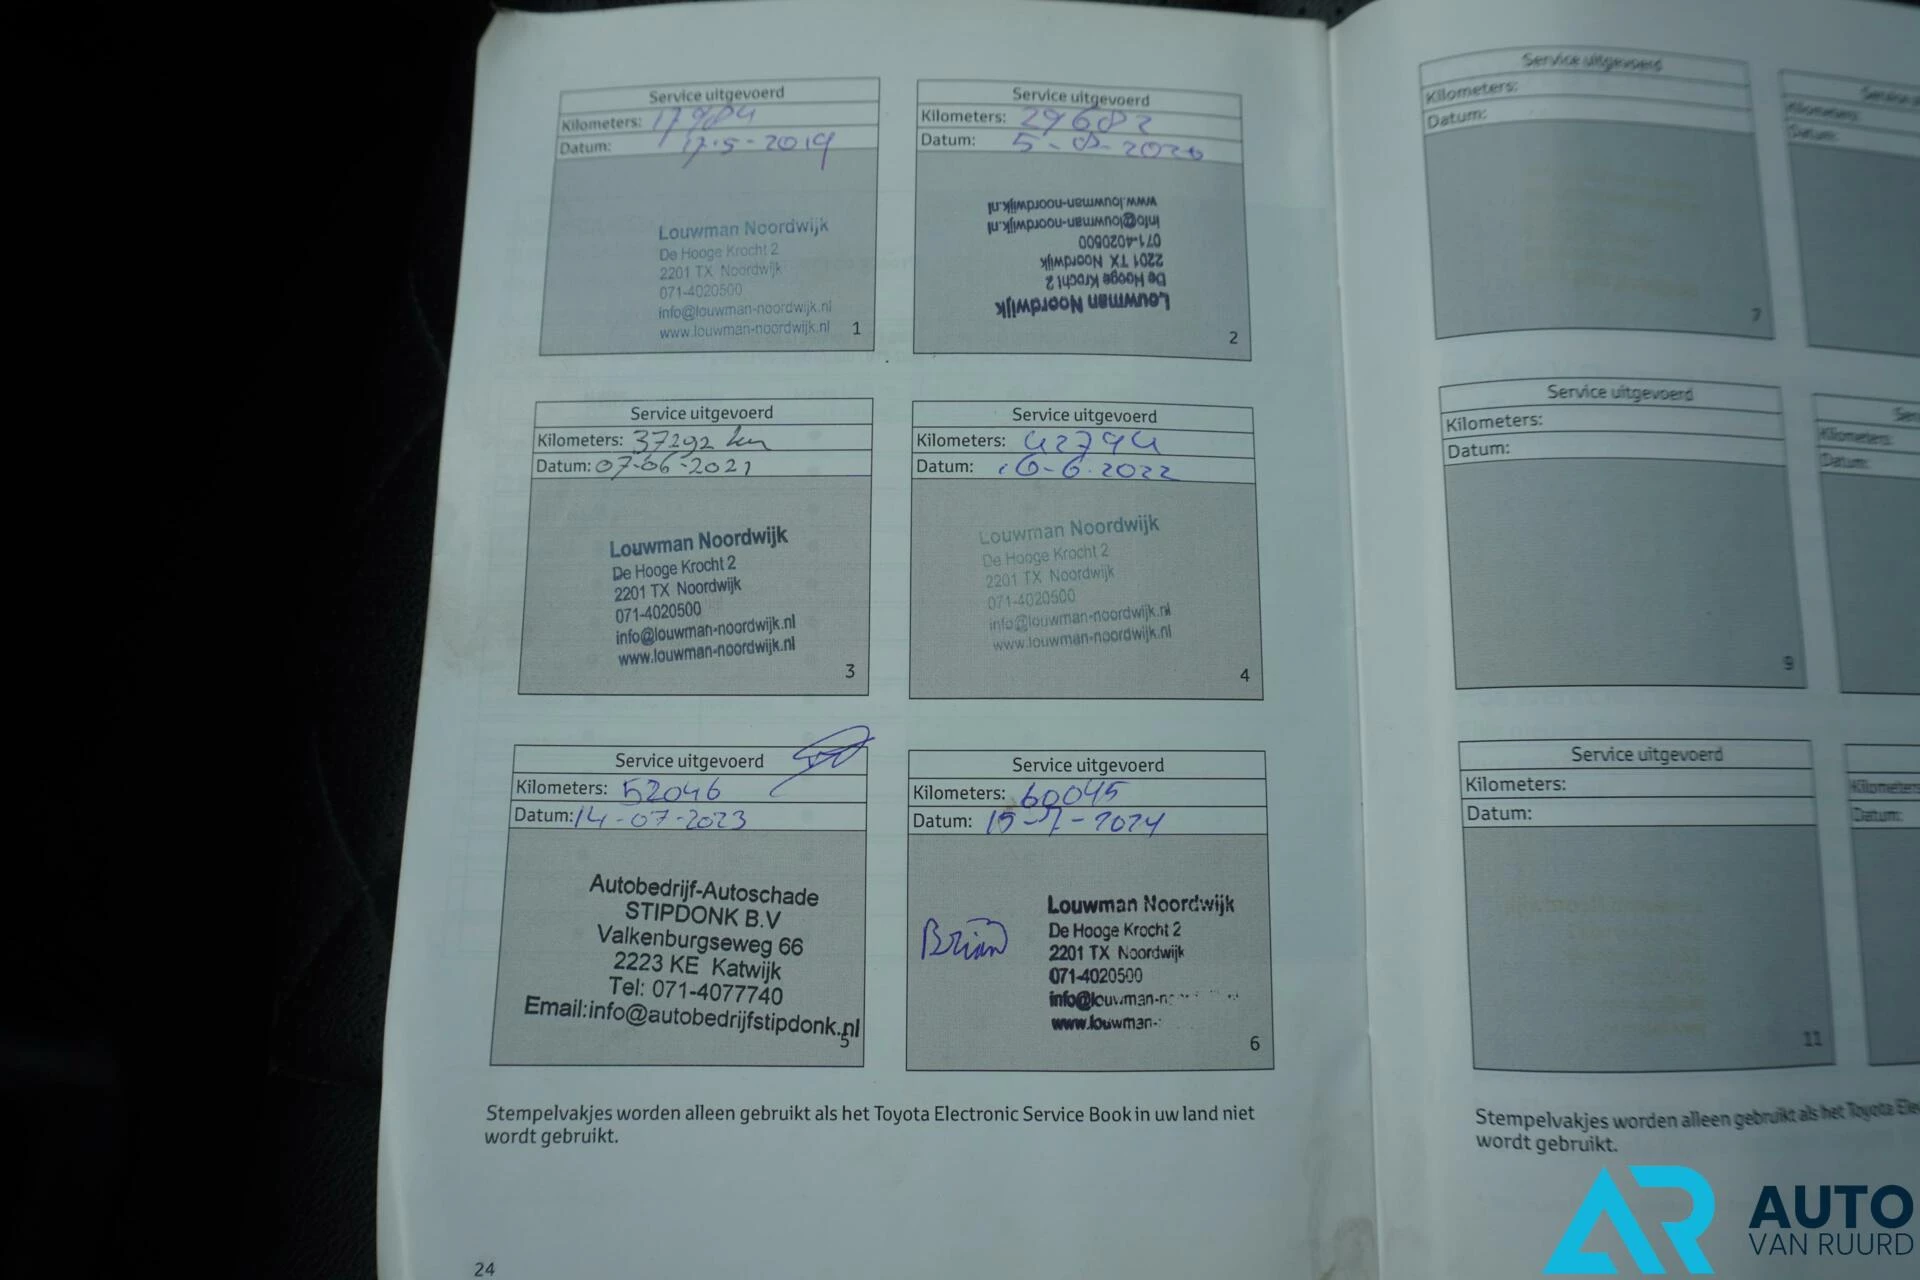 Service uitgevoerd
Kilometers: 17984
Datum: 17-5-2019
Louwman Noordwijk
De Hooge Krocht 2
2201 TX Noordwijk
071-4020500
info@louwman-noordwijk.nl
www.louwman-noordwijk.nl
1
Service uitgevoerd
Kilometers: 29682
Datum: 5-8-2020
Louwman Noordwijk
De Hooge Krocht 2
2201 TX Noordwijk
071-4020500
info@louwman-noordwijk.nl
www.louwman-noordwijk.nl
2
Service uitgevoerd
Kilometers: 37292 km
Datum: 07-06-2021
Louwman Noordwijk
De Hooge Krocht 2
2201 TX Noordwijk
071-4020500
info@louwman-noordwijk.nl
www.louwman-noordwijk.nl
3
Service uitgevoerd
Kilometers: 42794
Datum: 16-6-2022
Louwman Noordwijk
De Hooge Krocht 2
2201 TX Noordwijk
071-4020500
info@louwman-noordwijk.nl
www.louwman-noordwijk.nl
4
Service uitgevoerd
Kilometers: 52046
Datum: 14-07-2023
Autobedrijf-Autoschade
STIPDONK B.V
Valkenburgseweg 66
2223 KE Katwijk
Tel: 071-4077740
Email:info@autobedrijfstipdonk.nl
5
Service uitgevoerd
Kilometers: 60045
Datum: 15-7-2024
Brian
Louwman Noordwijk
De Hooge Krocht 2
2201 TX Noordwijk
071-4020500
info@louwman-n
www.louwman-
6
Stempelvakjes worden alleen gebruikt als het Toyota Electronic Service Book in uw land niet
wordt gebruikt.
24
Service uitgevoerd
Kilometers:
Datum:
7
Kilometers:
Datum:
Service uitgevoerd
Kilometers:
Datum:
9
Kilometers:
Datum:
Service uitgevoerd
Kilometers:
Datum:
11
Kilometers:
Datum:
Stempelvakjes worden alleen gebruikt als het Toyota
wordt gebruikt.
AR AUTO
VAN RUURD